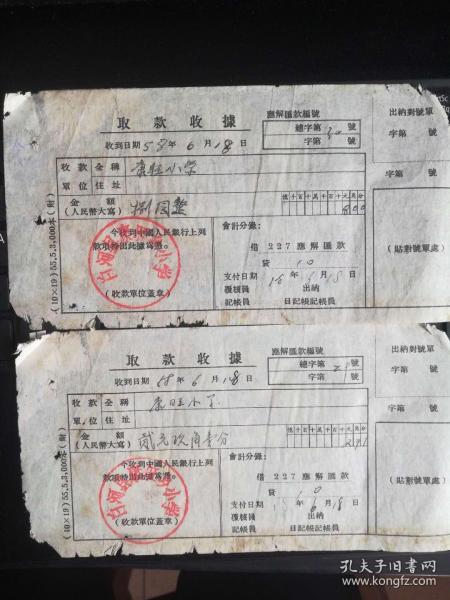 取款收據
應解匯款編號
總字第 號
字第 號
出納對號單
字第 號
收到日期 58 年 6 月 18 日
收款 全稱
單位 住址
億千百十萬千百十元角分
金額
(人民幣大寫) 捌圓整
800
今收到中國人民銀行上列
款項特出此據為憑。
(收款單位蓋章)
會計分錄:
借 227 應解匯款
貸 10
支付日期 年 6 月 18 日
覆核員 出納
記帳員 日記帳記帳員
(貼對號單處)
(10×19)55.5.3,000本(附)
取款收據
應解匯款編號
總字第 21 號
字第 號
出納對號單
字第 號
收到日期 58 年 6 月 18 日
收款 全稱
單位 住址
億千百十萬千百十元角分
金額
(人民幣大寫) 貳元玖角壹分
291
今收到中國人民銀行上列
款項特出此據為憑。
(收款單位蓋章)
會計分錄:
借 227 應解匯款
貸 10
支付日期 年 6 月 18 日
覆核員 出納
記帳員 日記帳記帳員
(貼對號單處)
(10×19)55.5.3,000本(附)
孔夫子旧书网
www.kongfz.com